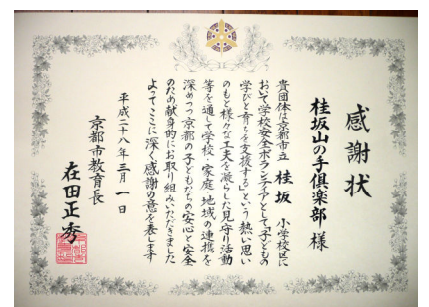 感謝状
桂坂山の手倶楽部 様
貴団体は京都市立 桂坂 小学校区に
おいて学校安全ボランティアとして「子どもの
学びと育ちを支援する」という熱い思い
のもと様々な工夫を凝らした見守り活動
等を通して学校・家庭・地域の連携を
深めつつ京都の子どもたちの安心と安全
のため献身的にお取り組みいただきました
よってここに深く感謝の意を表します
平成二十八年三月一日
京都市教育長
在田正秀